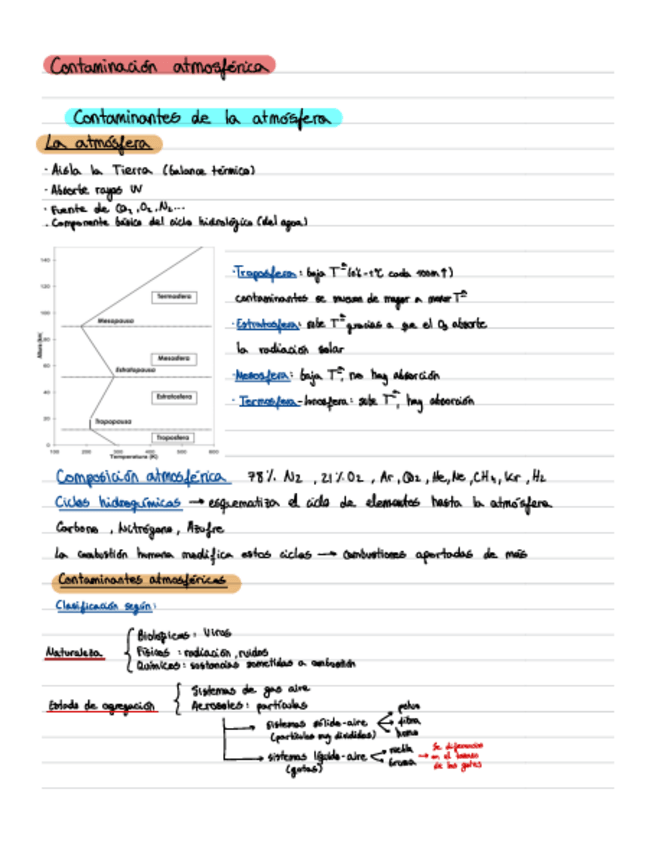 Contaminación atmosférica
Contaminantes de la atmósfera
La atmósfera
· Aisla la Tierra (balance térmico)
· Absorbe rayos UV
· Fuente de CO2, O2, N2...
· Componente básico del ciclo hidrológico (del agua)
140
120
100
80
60
40
20
0
Altura (km)
Termosfera
Mesopausa
Mesosfera
Estratopausa
Estratosfera
Tropopausa
Troposfera
100 200 300 400 500 600
Temperatura (K)
· Troposfera: baja Tª cada 100m ↑)
contaminantes se mueven de mayor a menor Tª
· Estratosfera: sube Tª gracias a que el O3 absorbe
la radiación solar
· Mesosfera: baja Tª, no hay absorción
· Termosfera-Ionosfera: sube Tª, hay absorción
Composición atmosférica 78% N2, 21% O2, Ar, CO2, He, Ne, CH4, Kr, H2
Ciclos hidroquímicos → esquematiza el ciclo de elementos hasta la atmósfera
Carbono, Nitrógeno, Azufre
La combustión humana modifica estos ciclos → combustiones aportadas de más
Contaminantes atmosféricos
Clasificación según:
Naturaleza
Biológicos: Virus
Físicos: radiación, ruidos
Químicos: sustancias sometidas a combustión
Estado de agregación
Sistemas de gas aire
Aerosoles: partículas
sistemas sólido-aire
(partículas muy divididas)
polvo
fibra
humo
sistemas líquido-aire
(gotas)
niebla
bruma
→ Se diferencian
en el tamaño
de las gotas